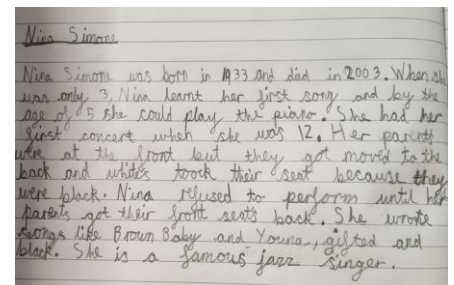 Nina Simone
Nina Simone was born in 1933 and died in 2003. When she
was only 3, Nina learnt her first song and by the
age of 5 she could play the piano. She had her
first concert when she was 12. Her parents
were at the front but they got moved to the
back and white's toock their seat because they
were black. Nina refused to perform until her
parents got their front seats back. She wrote
songs like Brown Baby and Youna, gifted and
black. She is a famous jazz singer.